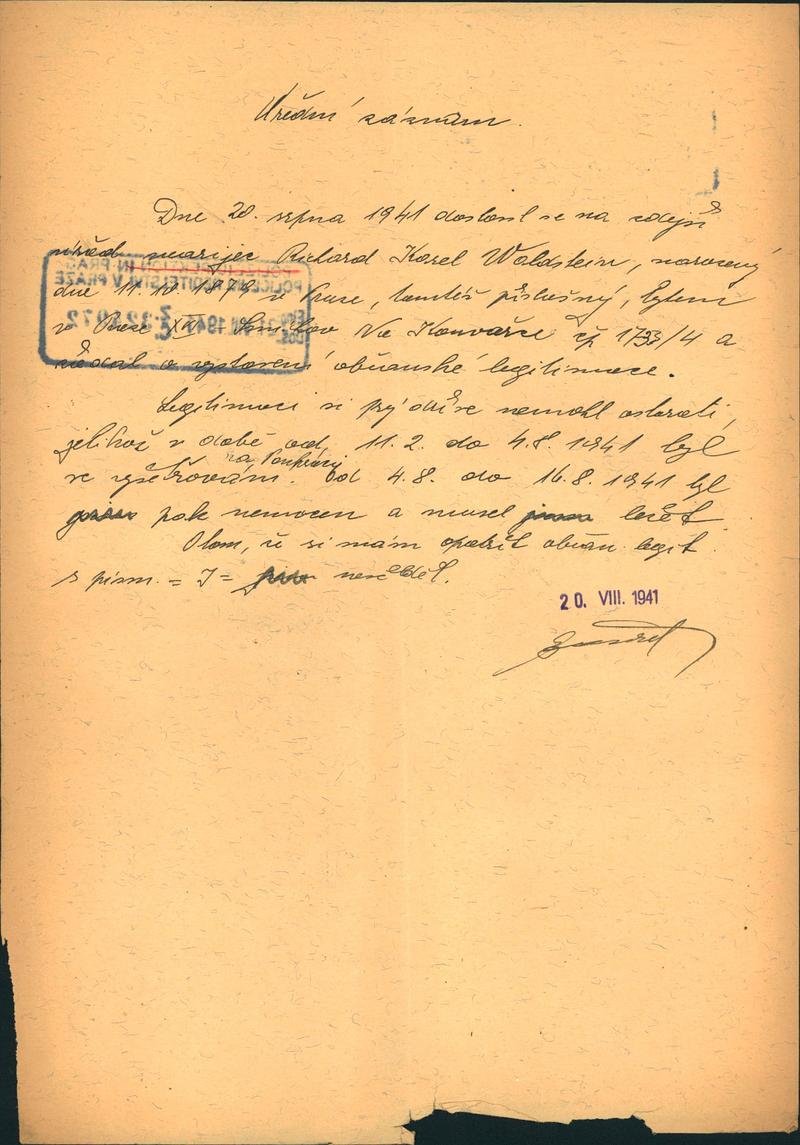 Úřední záznam.
Dne 20. srpna 1941 dostavil se na zdejší
úřad neárijec Richard Karel Waldstein, narozený
dne 11. 1879 v Praze, tamtéž příslušný, bytem
v Praze XVI Smíchov Na Konvářce čp 1793/4 a
žádal o vystavení občanské legitimace.
Legitimaci si prý dříve nemohl ostarati,
jelikož v době od 11.2. do 4.8. 1941 byl
ve vyšetřování na Pankráci. Od 4.8. do 16.8. 1941 byl
pak nemocen a musel ležet.
O tom, že si mám opatřit občan. legit.
s písm. = J = nevěděl.
20. VIII. 1941
POLIZEIDIREKTION IN PRAG
POLICEJNÍ ŘEDITELSTVÍ V PRAZE
1941